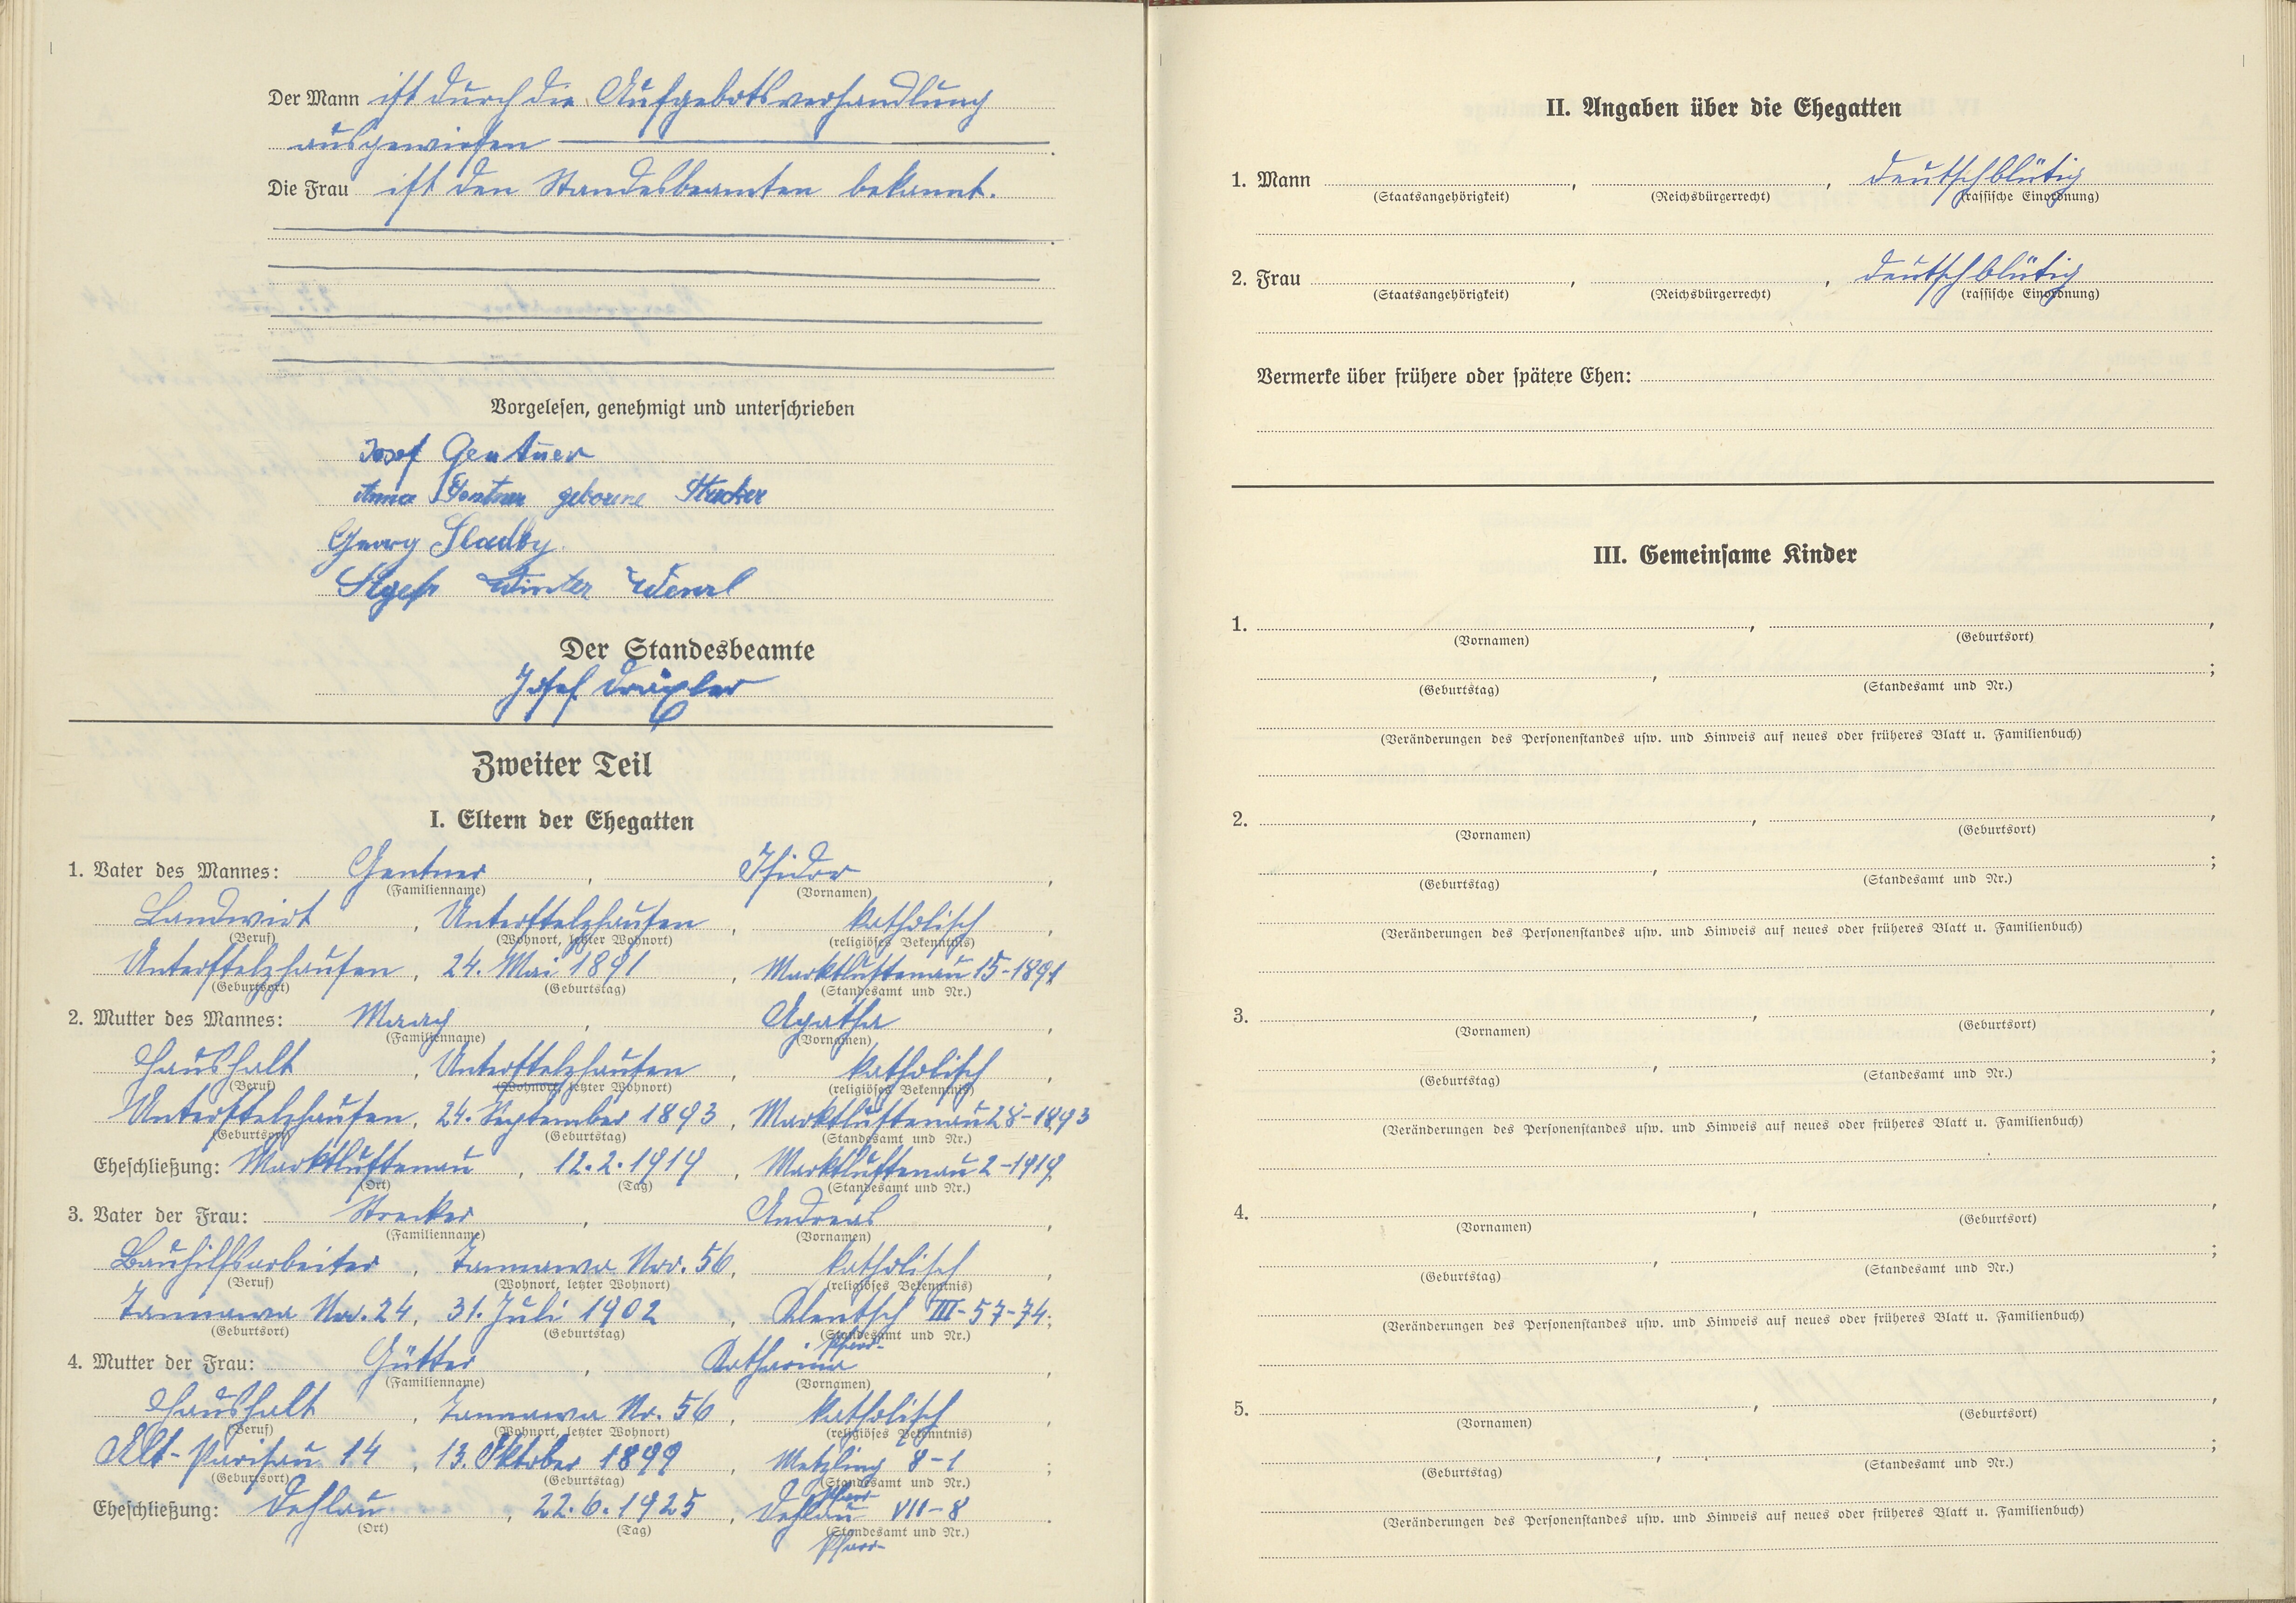 Der Mann ist durch die Aufgebotsverhandlung
ausgewiesen
Die Frau ist den Standesbeamten bekannt.
Vorgelesen, genehmigt und unterschrieben
Josef Gentner
Anna Gentner geborene Strecker
Georg Sladky
Winter Wenzl
Der Standesbeamte
Josef Drexler
Zweiter Teil
I. Eltern der Ehegatten
1. Vater des Mannes: Gentner, Isidor,
(Familienname) (Vornamen)
Landwirt, Unterstelzhausen, katholisch,
(Beruf) (Wohnort, letzter Wohnort) (religiöses Bekenntnis)
Unterstelzhausen, 24. Mai 1891, Marktlustenau 15-1891
(Geburtsort) (Geburtstag) (Standesamt und Nr.)
2. Mutter des Mannes: Maag, Agatha,
(Familienname) (Vornamen)
Haushalt, Unterstelzhausen, katholisch,
(Beruf) (Wohnort, letzter Wohnort) (religiöses Bekenntnis)
Unterstelzhausen, 24. September 1893, Marktlustenau 28-1893
(Geburtsort) (Geburtstag) (Standesamt und Nr.)
Eheschließung: Marktlustenau, 12.2.1919, Marktlustenau 2-1919
(Ort) (Tag) (Standesamt und Nr.)
3. Vater der Frau: Strecker, Andreas,
(Familienname) (Vornamen)
Bauhilfsarbeiter, Tannawa Nro. 56, katholisch,
(Beruf) (Wohnort, letzter Wohnort) (religiöses Bekenntnis)
Tannawa Nro. 24, 31. Juli 1902, Klentsch III-57-74;
(Geburtsort) (Geburtstag) (Standesamt und Nr.)
Pfarr-
4. Mutter der Frau: Gütter, Katharina,
(Familienname) (Vornamen)
Haushalt, Tannawa Nr. 56, katholisch,
(Beruf) (Wohnort, letzter Wohnort) (religiöses Bekenntnis)
Alt-Parisau 14, 13. Oktober 1899, Metzling 8-1;
(Geburtsort) (Geburtstag) (Standesamt und Nr.)
Pfarr-
Eheschließung: Dehlau, 22.6.1925, Dehlau VII-8.
(Ort) (Tag) (Standesamt und Nr.)
Pfarr-
II. Angaben über die Ehegatten
1. Mann , , deutschblütig
(Staatsangehörigkeit) (Reichsbürgerrecht) (rassische Einordnung)
2. Frau , , deutschblütig
(Staatsangehörigkeit) (Reichsbürgerrecht) (rassische Einordnung)
Vermerke über frühere oder spätere Ehen:
III. Gemeinsame Kinder
1. , ,
(Vornamen) (Geburtsort)
, ;
(Geburtstag) (Standesamt und Nr.)
(Veränderungen des Personenstandes usw. und Hinweis auf neues oder früheres Blatt u. Familienbuch)
2. , ,
(Vornamen) (Geburtsort)
, ;
(Geburtstag) (Standesamt und Nr.)
(Veränderungen des Personenstandes usw. und Hinweis auf neues oder früheres Blatt u. Familienbuch)
3. , ,
(Vornamen) (Geburtsort)
, ;
(Geburtstag) (Standesamt und Nr.)
(Veränderungen des Personenstandes usw. und Hinweis auf neues oder früheres Blatt u. Familienbuch)
4. , ,
(Vornamen) (Geburtsort)
, ;
(Geburtstag) (Standesamt und Nr.)
(Veränderungen des Personenstandes usw. und Hinweis auf neues oder früheres Blatt u. Familienbuch)
5. , ,
(Vornamen) (Geburtsort)
, ;
(Geburtstag) (Standesamt und Nr.)
(Veränderungen des Personenstandes usw. und Hinweis auf neues oder früheres Blatt u. Familienbuch)